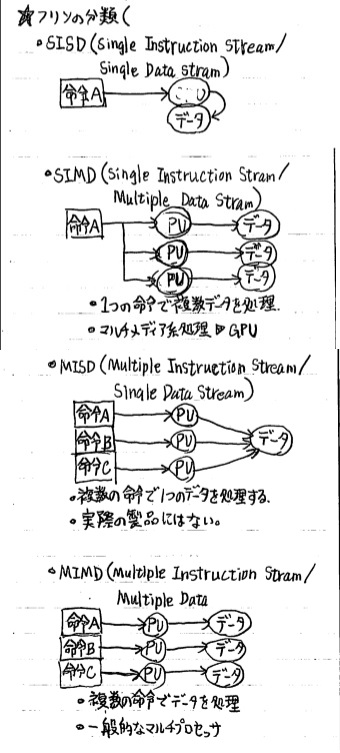 ★フリンの分類(
・SISD(Single Instruction Stream/
Single Data Stram)
命令A
データ
・SIMD(Single Instruction Stram/
Multiple Data Stram)
命令A PU データ
PU データ
PU データ
・1つの命令で複数データを処理.
・マルチメディア系処理▷GPU
・MISD(Multiple Instruction Stream/
Single Data Stream)
命令A PU
命令B PU データ
命令C PU
・複数の命令で1つのデータを処理する.
・実際の製品にはない。
・MIMD(Multiple Instruction Stram/
Multiple Data
命令A PU データ
命令B PU データ
命令C PU データ
・複数の命令でデータを処理
・一般的なマルチプロセッサ